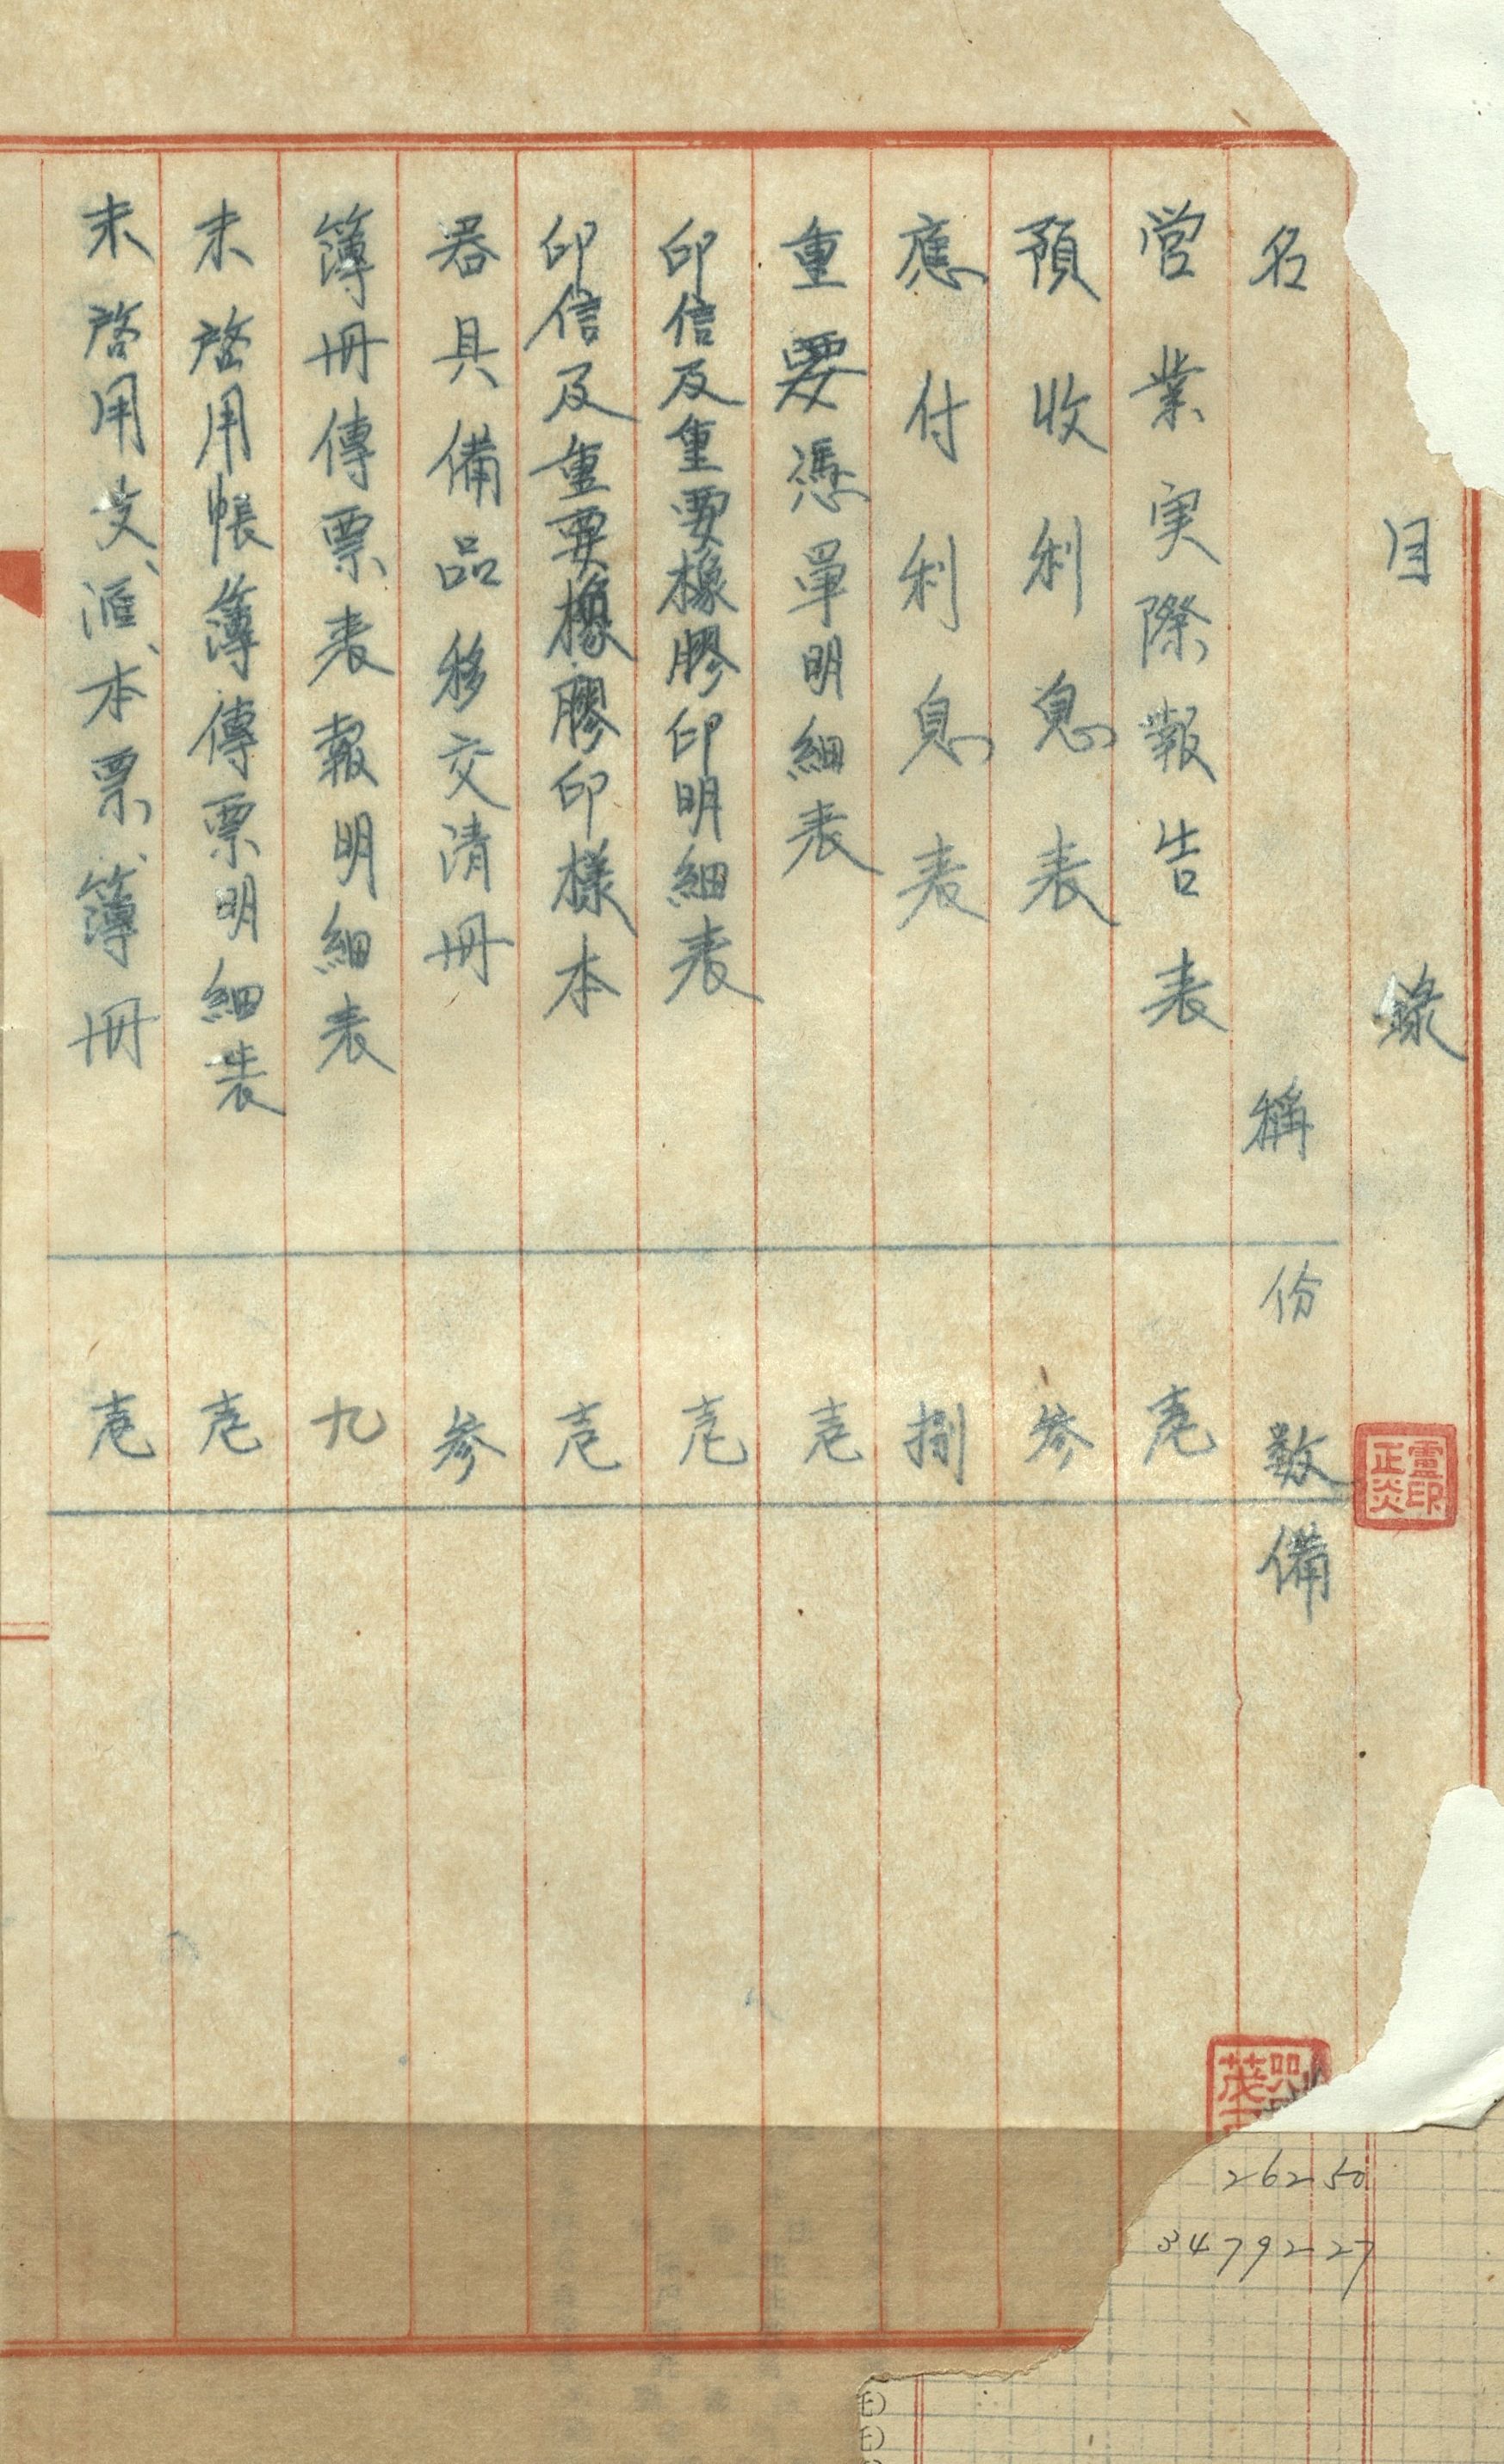 目錄
名稱 份数 備
営業実際報告表 壱
預收利息表 参
應付利息表 捌
重要憑單明細表 壱
印信及重要橡膠印明細表 壱
印信及重要橡膠印樣本 壱
器具備品移交清冊 参
簿冊傳票表報明細表 九
未啓用帳簿傳票明細表 壱
未啓用支、滙、本票、簿冊 壱
盧印正炎
茂
26250
3479227